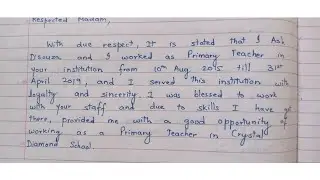 Respected Madam,
With due respect, It is stated that I Ash
Dsouza and I worked as Primary Teacher in
your institution from 10th Aug 2015 till 31st
April 2019, and I served this institution with
loyalty and sincerity. I was blessed to work
with your staff and due to skills I have got
there, provided me with a good opportunity of
working as a Primary Teacher in Crystal
Diamond School.